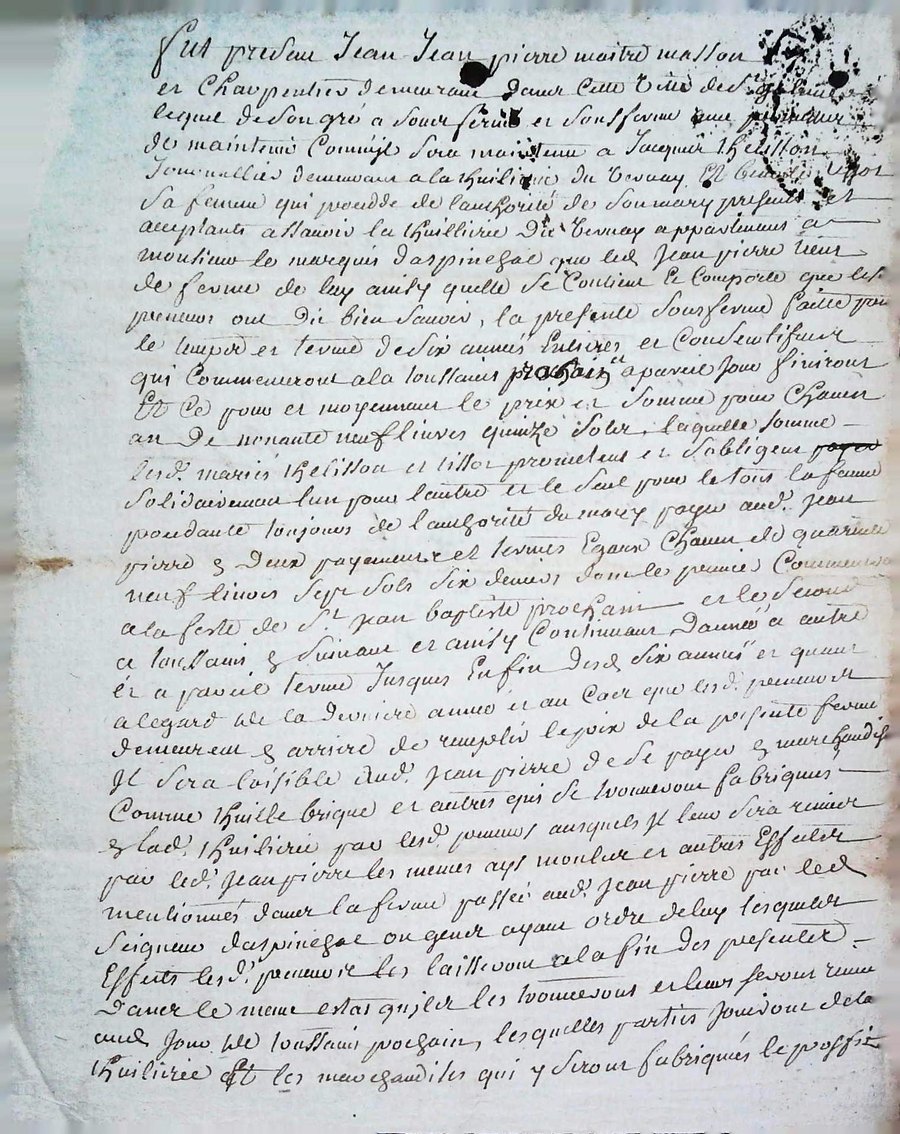 fut presant Jean Jean pierre maitre masson
et Charpentier demeurant dans cette ville de St
lequel de son gré a sousfermé et sousferme avec
de maintenir Commil sera maintenu a Jacques thelisson
Journallier demeurant a la thuilirie du Vernay Et tissot
Sa femme qui procedde de lauthorité de Son mary presents et
acceptants assauoir la thuillirie Du Vernay appartenans a
monsieur le marquis daspinchac que led Jean pierre tient
de ferme de luy ainsy quelle Se Contient Et Comporte que les
preneurs ont Dit bien Sauoir, la presente Sousferme faitte pour
le temps et terme de Six années Entieres et Consecutifues
qui Commenceront a la toussaint prochain a pareil Jour finiront
Et Ce pour et moyennant le prix et Somme pour Chacun
an De nonante neuf liures quinze Sols, laquelle Somme
lesd. mariés thelisson et tissot promettent et Sobligent payer
Solidairement lun pour lautre et le Seul pour le tous la femme
procedante toujours de lauthorité du mary payer aud. Jean
pierre En Deux payements et termes Egaux Chacun de quarente
neuf liures Sept Sols Six deniers dont le premier Commencera
a la feste de St Jean baptiste prochain et le Second
a toussaint En Suiuant et ainsy Continuant Dannée a autre
et a pareil terme Jusques En fin Desd Six années et quant
a legard de la Derniere année et au Cas que lesd. preneurs
demeurent En arriere de remplir le prix de la presente ferme
Jl Sera loisible aud. Jean pierre de Se payer En marchandise
Comme thuille brique et autres qui Se trouueront fabriqués
En lad. thuilirie par lesd. preneurs ausquels Jl leur Sera remis
par led. Jean pierre les memes ays moules et autres Effets
mentionnés dans la ferme passée aud. Jean pierre par led
Seigneur daspinchac ou gens ayant ordre de luy lesquels
Effects lesd. preneurs les laisseront a la fin des presentes
Dans le meme estat quils les trouueront et leurs seront remis
aud Jour de toussaint prochain, lesquelles parties Jouiront de la
thuilirie Et les marchandises qui y Seront fabriqués le proffit